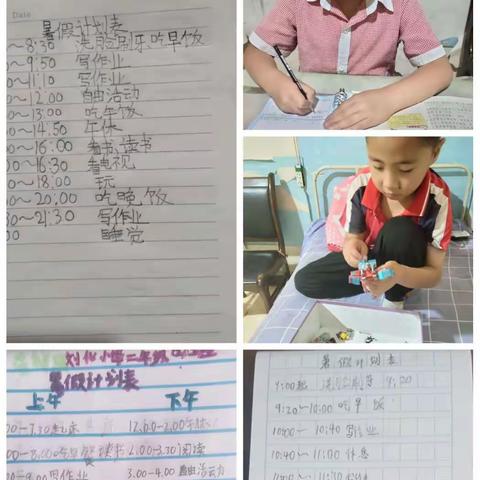 Date
暑假计划表
0~8:30 洗脸刷牙吃早饭
0~9:50 写作业
0~11:10 写作业
0~12:00 自由活动
0~13:00 吃午饭
0~14:50 午休
0~16:00 看书读书
0~16:30 看电视
0~18:00 玩
0~20:00 吃晚饭
30~21:30 写作业
00 睡觉
小学二年级
暑假计划表
上午 下午
00-7.30 12.00-2.00午休
00-8.00 读书 2.00-3.30阅读
00-9.00写作业 3.00-4.00自由活动
暑假计划表
9:00起 洗脸刷牙 9:20
9:20~10:00 吃早饭
10:00~10:40 写作业
10:40~11:00 休息